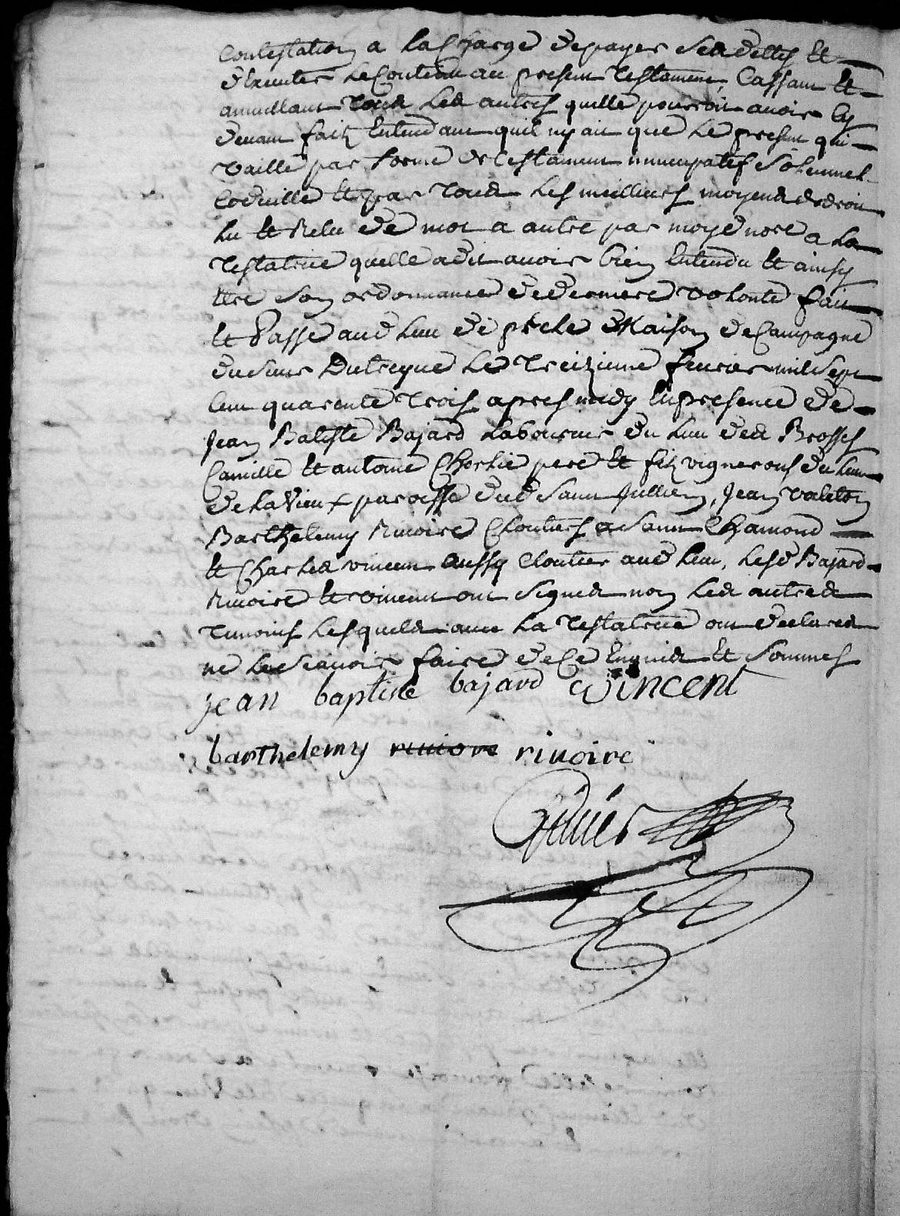 contestation a la charge de payer ses dettes et
dexecuter le contenu au present testament, Cassant et
annullant tous les autres quelle pourroit avoir cy
devant faits Entendant quil ny ait que le present qui
vaille par forme de testament nuncupatif solemnel
codicille et par tous les meilleurs moyens de droit
lu et relu de mot a autre par moy nore a la
testatrice quelle a dit avoir bien Entendu et ainsy
etre son ordonnance de derniere volonté fait
et Passé aud lieu de Maison de Campagne
du sieur Dutreyve le treizieme fevrier mil sept
cent quarente trois apres midy En presence de
Jean Batiste Bajard laboureur du lieu des Brosses
Camille et antoine Chorlie pere et fils vignerons du lieu
de la vieux paroisse dud Saint Jullien, Jean valeton
Barthelemy Rivoire Cloutiers a Saint Chamond
et Charles vincent aussy Cloutier aud lieu, lesd Bajard
Rivoire et vincent ont signés non les autres
temoins lesquels avec la testatrice ont declarés
ne le scavoir faire de ce Enquis et sommes
jean baptiste bajard vincent
barthelemy rivoire